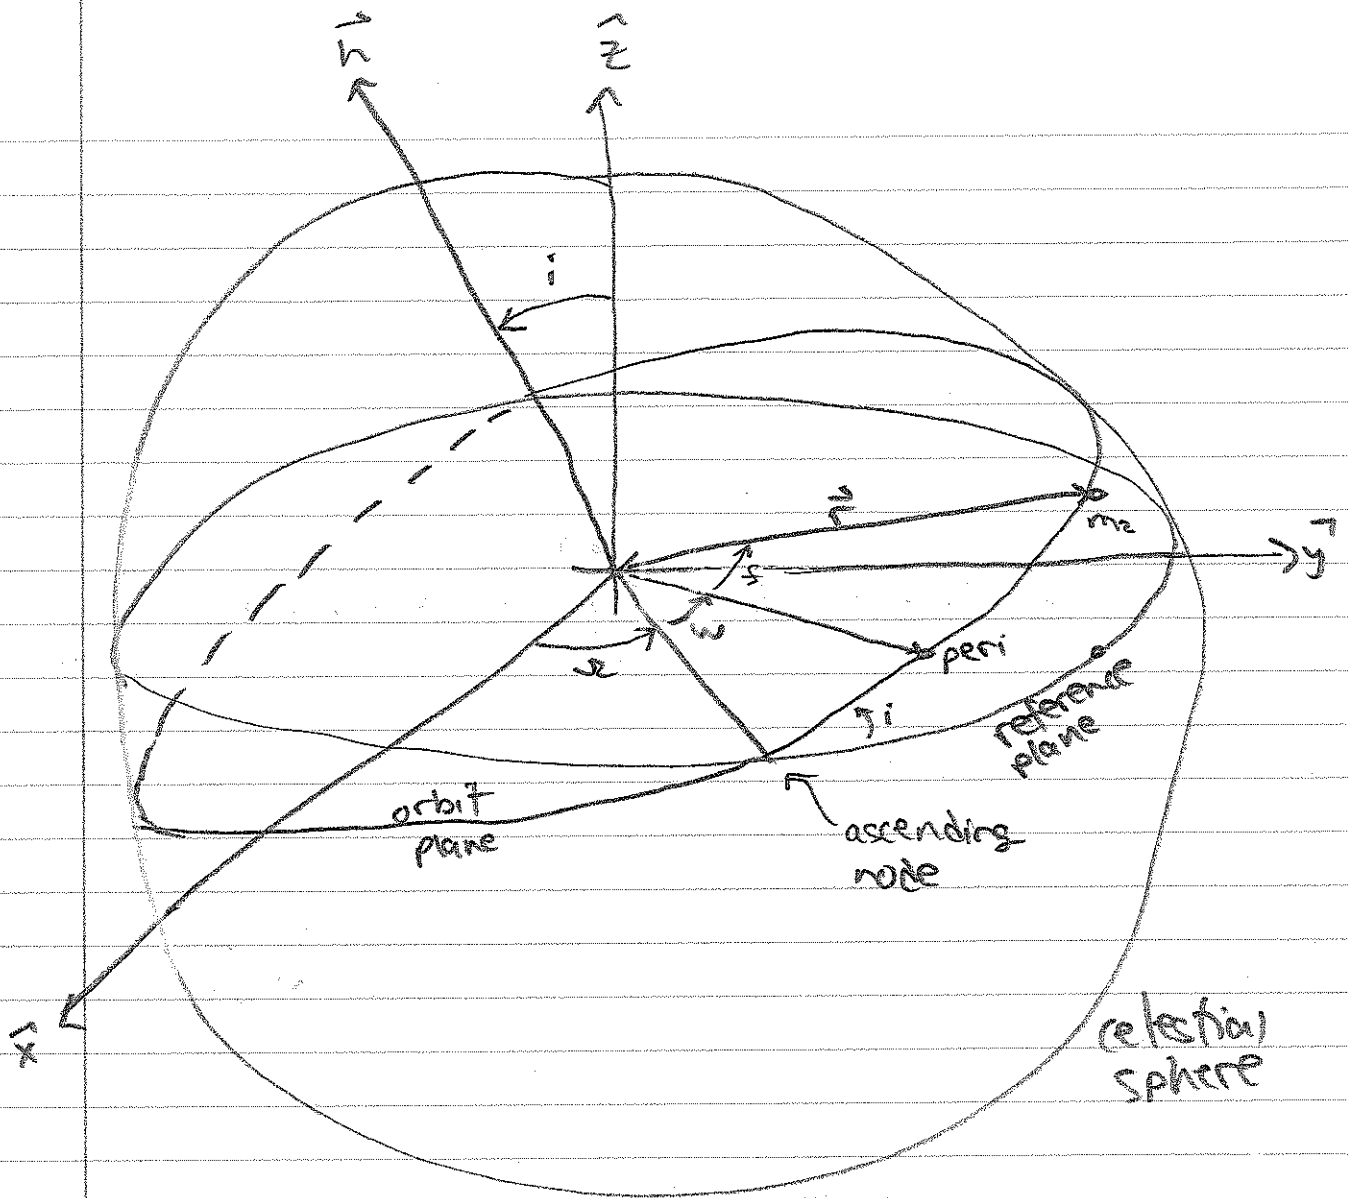 h⃗
ẑ
i
r⃗
m₂
y⃗
f
ω
Ω
peri
i
reference
plane
orbit
plane
ascending
node
x̂
celestial
sphere